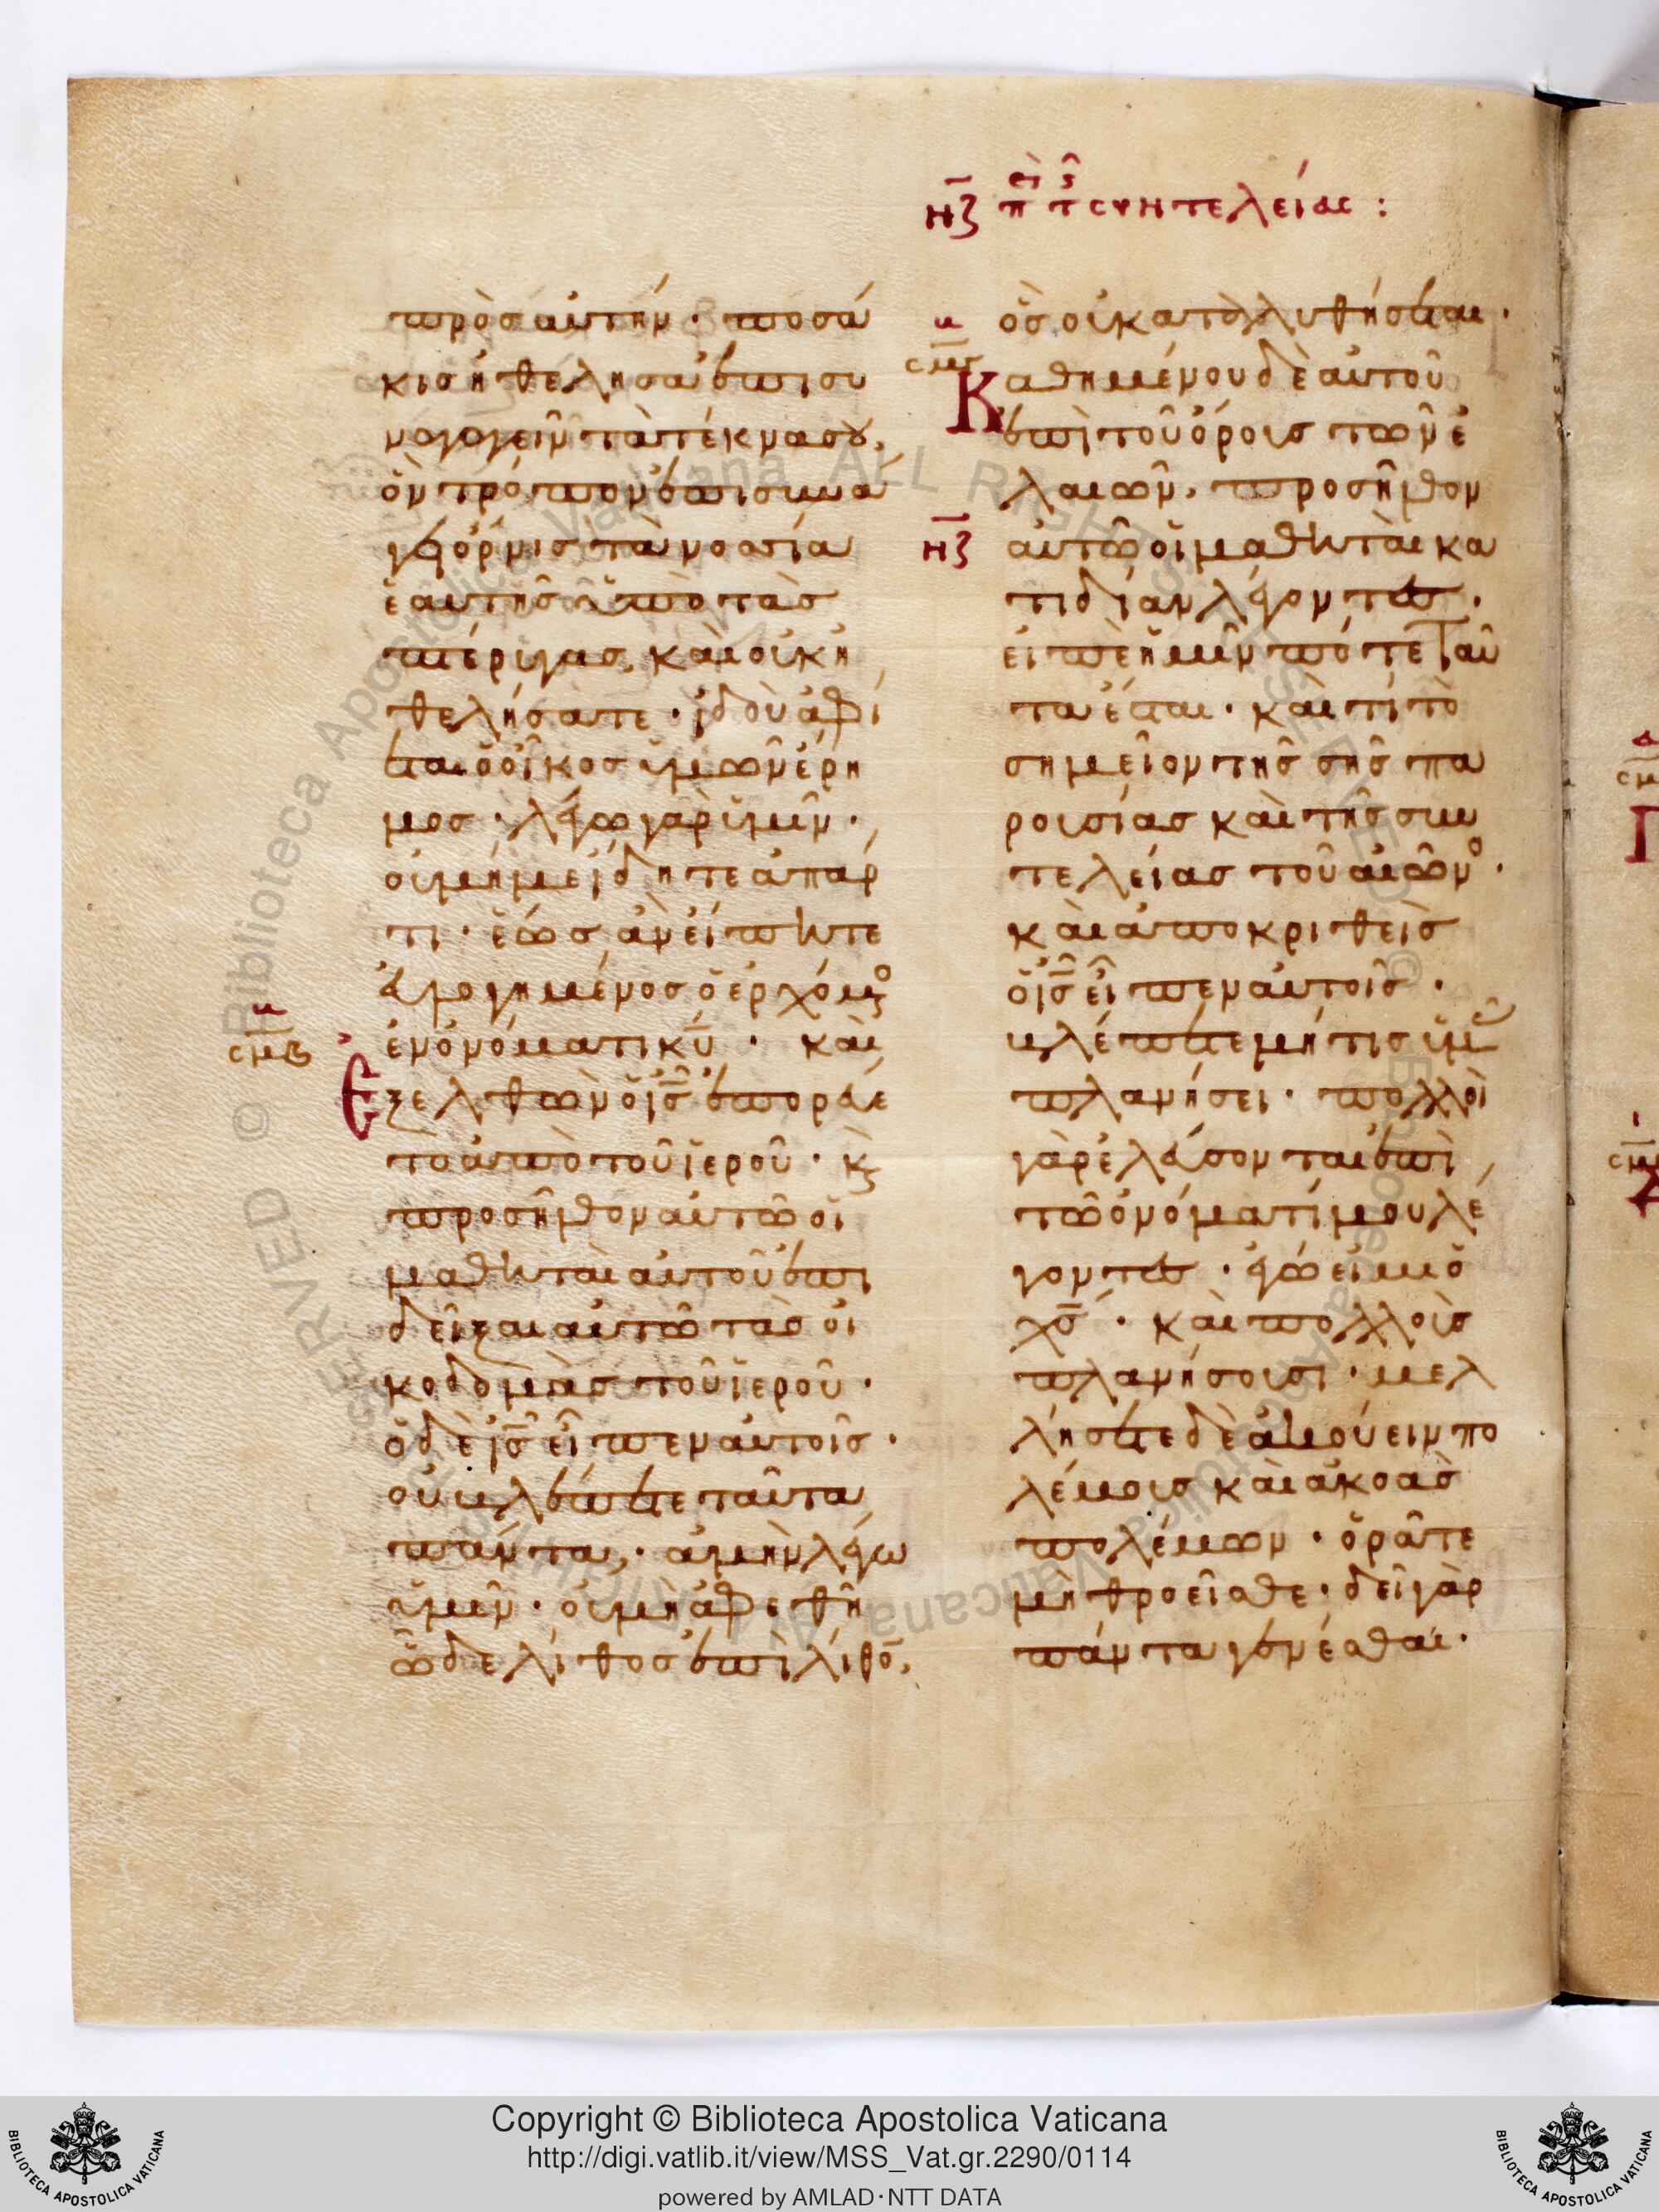 νζ πε τς συντελείας :
πρὸς αὐτήν· ποσά
κις ἠθέλησα ἐπισυ
ναγαγεῖν τὰ τέκνα σου,
ὃν τρόπον ἐπισυνά
γει ὄρνις τὰ νοσσία
ἑαυτῆς ὑπὸ τὰς
πτέρυγας, καὶ οὐκ ἠ
θελήσατε· ἰδοὺ ἀφί
εται ὁ οἶκος ὑμῶν ἔρη
μος· λέγω γὰρ ὑμῖν·
οὐ μή με ἴδητε ἀπάρ
τι· ἕως ἂν εἴπητε
εὐλογημένος ὁ ἐρχόμο
ἐν ὀνόματι κυ· καὶ
Ἐξελθὼν ὁ ις ἐπορεύε
το ἀπὸ τοῦ ἱεροῦ· κ
προσῆλθον αὐτῶ οἱ
μαθηταὶ αὐτοῦ ἐπι
δεῖξαι αὐτῶ τὰς οἰ
κοδομὰς τοῦ ἱεροῦ·
ὁ δὲ ις εἶπεν αὐτοῖς·
οὐ βλέπετε ταῦτα
πάντα,· ἀμὴν λέγω
ὑμῖν· οὐ μὴ ἀφεθῆ
ὧδε λίθος ἐπὶ λίθο,
ὃς οὐ καταλυθήσεται·
Καθημένου δὲ αὐτοῦ
ἐπὶ τοῦ ὄρους τῶν ἐ
λαιῶν, προσῆλθον
αὐτῶ οἱ μαθηταὶ κα
τιδίαν λέγοντες·
εἰπὲ ἡμῖν πότε ταῦ
τα ἔσται· καὶ τί τὸ
σημεῖον τῆς σῆς πα
ρουσίας καὶ τῆς συν
τελείας τοῦ αἰῶνο·
καὶ ἀποκριθεὶς
ὁ ις εἶπεν αὐτοῖς·
βλέπετε μή τις ὑμ
πλανήσει· πολλοὶ
γὰρ ἐλεύσονται ἐπὶ
τῶ ὀνόματί μου λέ
γοντες· ἐγώ εἰμι ὁ
χς· καὶ πολλοὺς
πλανήσουσι· μελ
λήσετε δὲ ἀκούειν πο
λέμους καὶ ἀκοὰς
πολέμων· ὁρᾶτε
μὴ θροεῖσθε· δεῖ γὰρ
πάντα γενέσθαι·
σμβ
νζ
Copyright © Biblioteca Apostolica Vaticana
http://digi.vatlib.it/view/MSS_Vat.gr.2290/0114
powered by AMLAD·NTT DATA
BIBLIOTECA APOSTOLICA VATICANA
BIBLIOTECA APOSTOLICA VATICANA